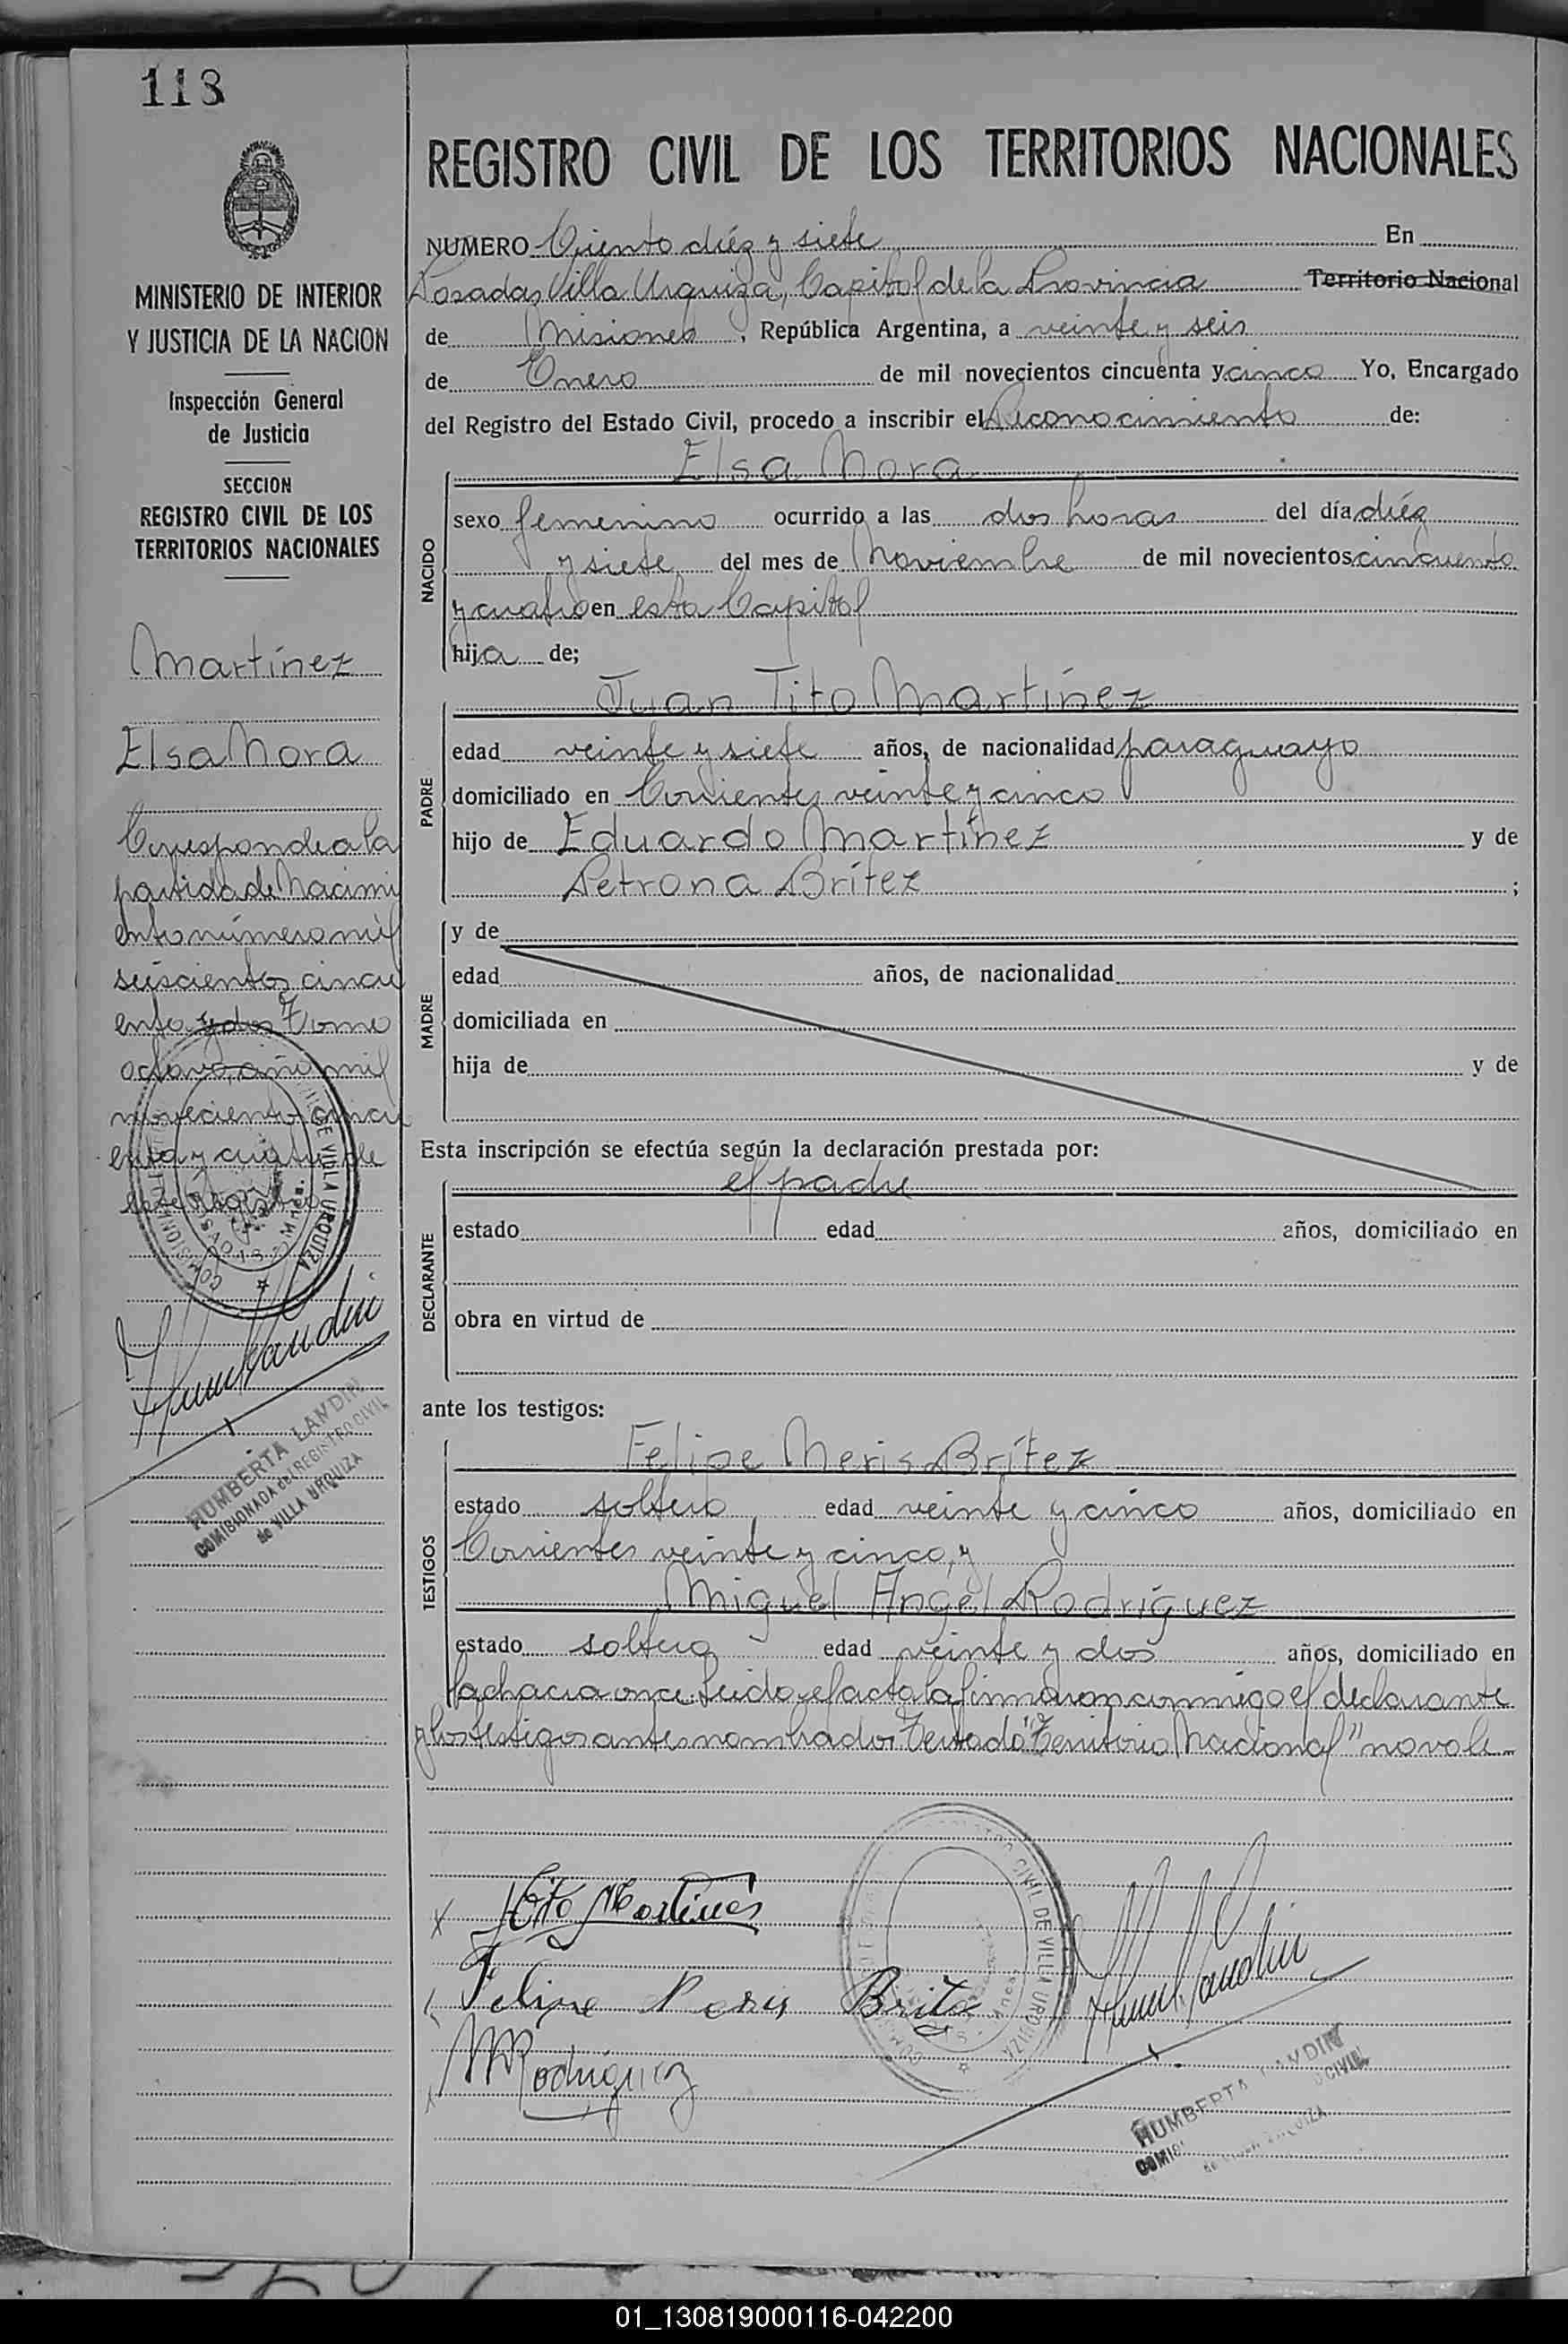 118
MINISTERIO DE INTERIOR
Y JUSTICIA DE LA NACION
Inspección General
de Justicia
SECCION
REGISTRO CIVIL DE LOS
TERRITORIOS NACIONALES
Martínez
Elsa Nora
Corresponde a la
partida de Nacimi
ento número mil
seiscientos cincu
enta y dos Tomo
octavo, año mil
novecientos cincu
enta y cuatro de
este Registro
HUMBERTA LANDIN
COMISIONADA del REGISTRO CIVIL
de VILLA URQUIZA
REGISTRO CIVIL DE LOS TERRITORIOS NACIONALES
NUMERO Ciento diéz y siete En
Posadas, Villa Urquiza, Capital de la Provincia Territorio Nacional
de Misiones, República Argentina, a veinte y seis
de Enero de mil novecientos cincuenta y cinco Yo, Encargado
del Registro del Estado Civil, procedo a inscribir el Reconocimiento de:
Elsa Nora
NACIDO
sexo femenino ocurrido a las dos horas del día diéz
y siete del mes de Noviembre de mil novecientos cincuenta
y cuatro en esta Capital
hija de;
Juan Tito Martínez
PADRE
edad veinte y siete años, de nacionalidad paraguayo
domiciliado en Corrientes veinte y cinco
hijo de Eduardo Martínez y de
Petrona Brítez ;
MADRE
y de
edad años, de nacionalidad
domiciliada en
hija de y de
Esta inscripción se efectúa según la declaración prestada por:
el padre
DECLARANTE
estado edad años, domiciliado en
obra en virtud de
ante los testigos:
Felipe Neris Brítez
TESTIGOS
estado soltero edad veinte y cinco años, domiciliado en
Corrientes veinte y cinco, y
Miguel Angel Rodríguez
estado soltero edad veinte y dos años, domiciliado en
la chacra once. Leida el acta la firmaron conmigo el declarante
y los testigos antes nombrados. Testado: "Territorio Nacional" no vale
Tito Martines
Felipe Neris Brite
M Rodríguez
REGISTRO CIVIL DE VILLA URQUIZA
HUMBERTA LANDIN
01_130819000116-042200